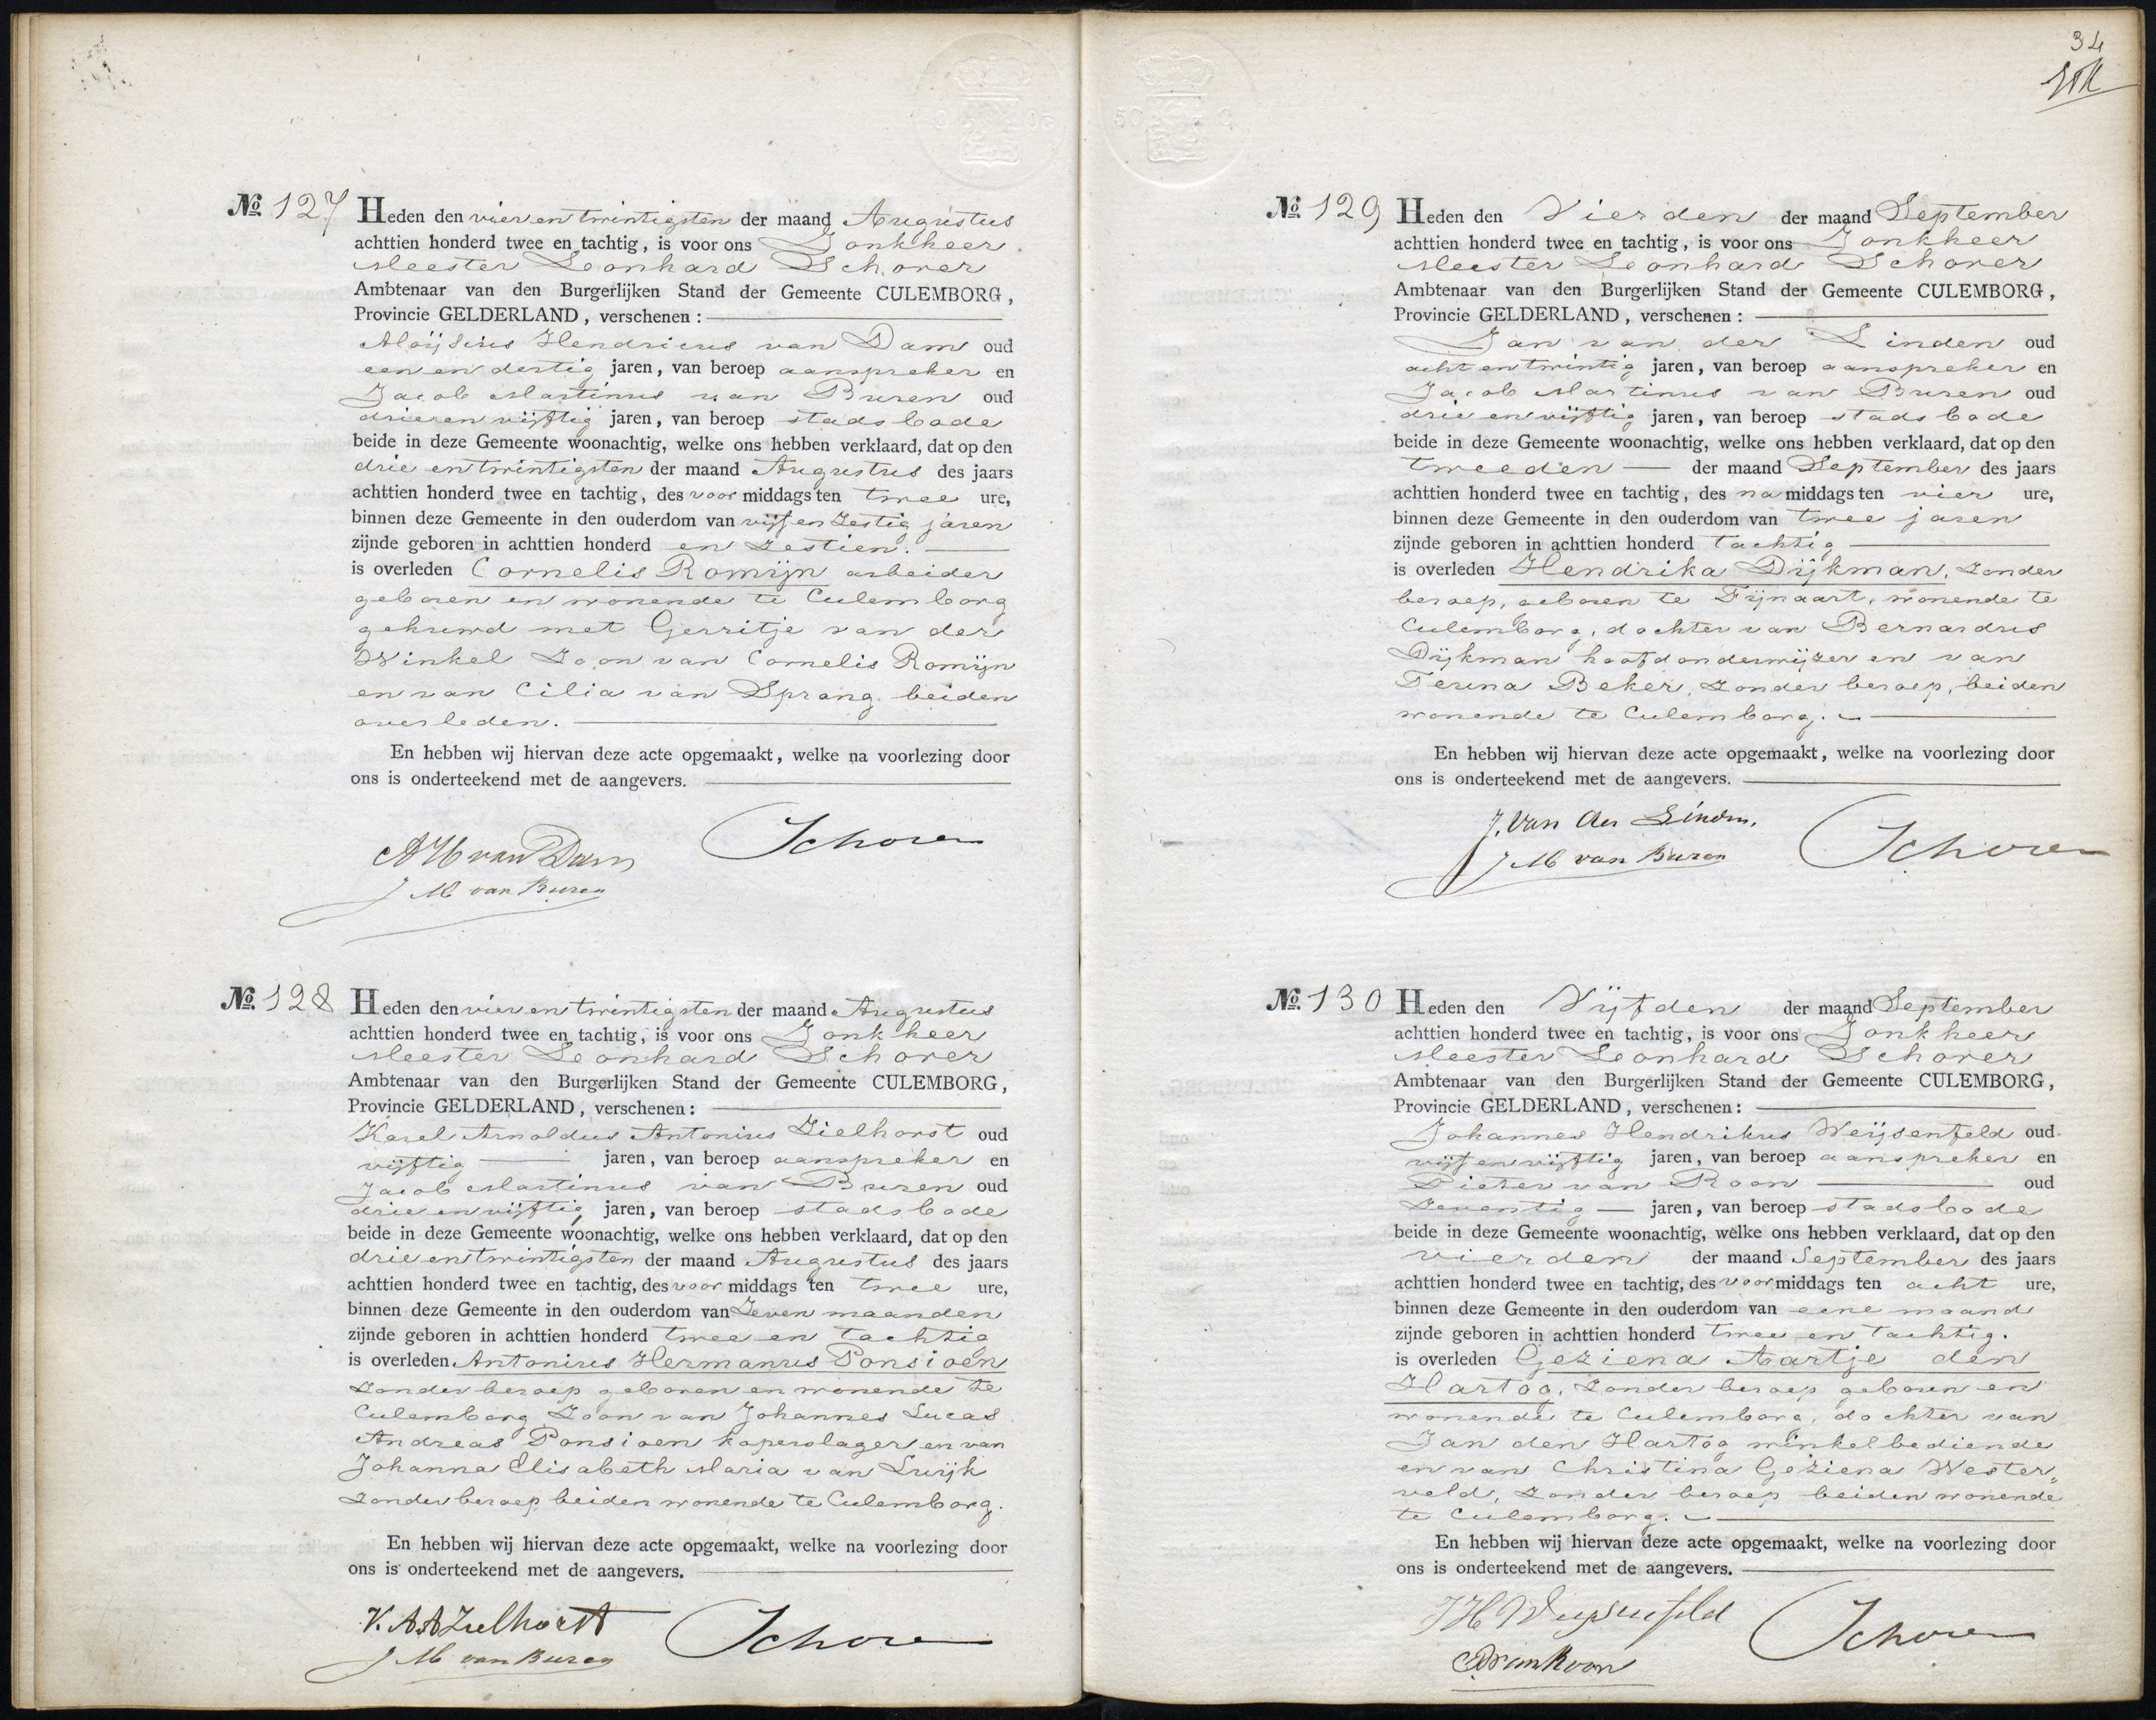 No. 127 Heden den vier en twintigsten der maand Augustus
achttien honderd twee en tachtig, is voor ons Jonkheer
Meester Leonhard Schorer
Ambtenaar van den Burgerlijken Stand der Gemeente CULEMBORG,
Provincie GELDERLAND, verschenen:
Aloijsius Hendricus van Dam oud
een en dertig jaren, van beroep aanspreker en
Jacob Martinus van Buren oud
drie en vijftig jaren, van beroep stadsbode
beide in deze Gemeente woonachtig, welke ons hebben verklaard, dat op den
drie en twintigsten der maand Augustus des jaars
achttien honderd twee en tachtig, des voormiddags ten twee ure,
binnen deze Gemeente in den ouderdom van vijf en zestig jaren
zijnde geboren in achttien honderd en zestien.
is overleden Cornelis Romijn arbeider
geboren en wonende te Culemborg
gehuwd met Gerritje van der
Winkel zoon van Cornelis Romijn
en van Cilia van Sprang beiden
overleden.
En hebben wij hiervan deze acte opgemaakt, welke na voorlezing door
ons is onderteekend met de aangevers.
AH van Dam Schorer
J M van Buren
No. 128 Heden den vier en twintigsten der maand Augustus
achttien honderd twee en tachtig, is voor ons Jonkheer
Meester Leonhard Schorer
Ambtenaar van den Burgerlijken Stand der Gemeente CULEMBORG,
Provincie GELDERLAND, verschenen:
Karel Arnoldus Antonius Zielhorst oud
vijftig jaren, van beroep aanspreker en
Jacob Martinus van Buren oud
drie en vijftig jaren, van beroep stadsbode
beide in deze Gemeente woonachtig, welke ons hebben verklaard, dat op den
drie en twintigsten der maand Augustus des jaars
achttien honderd twee en tachtig, des voormiddags ten twee ure,
binnen deze Gemeente in den ouderdom van Zeven maanden
zijnde geboren in achttien honderd twee en tachtig
is overleden Antonius Hermanus Ponsioen
zonder beroep geboren en wonende te
Culemborg Zoon van Johannes Lucas
Andreas Ponsioen koperslager en van
Johanna Elisabeth Maria van Luijk
zonder beroep beiden wonende te Culemborg.
En hebben wij hiervan deze acte opgemaakt, welke na voorlezing door
ons is onderteekend met de aangevers.
K. A. A Zielhorst Schorer
J M van Buren
34
No. 129 Heden den Vierden der maand September
achttien honderd twee en tachtig, is voor ons Jonkheer
Meester Leonhard Schorer
Ambtenaar van den Burgerlijken Stand der Gemeente CULEMBORG,
Provincie GELDERLAND, verschenen:
Jan van der Linden oud
acht en twintig jaren, van beroep aanspreker en
Jacob Martinus van Buren oud
drie en vijftig jaren, van beroep stadsbode
beide in deze Gemeente woonachtig, welke ons hebben verklaard, dat op den
tweeden der maand September des jaars
achttien honderd twee en tachtig, des namiddags ten vier ure,
binnen deze Gemeente in den ouderdom van twee jaren
zijnde geboren in achttien honderd tachtig
is overleden Hendrika Dijkman, zonder
beroep, geboren te Fijnaart, wonende te
Culemborg, dochter van Bernardus
Dijkman hoofdonderwijzer en van
Teuna Beker, zonder beroep, beiden
wonende te Culemborg.
En hebben wij hiervan deze acte opgemaakt, welke na voorlezing door
ons is onderteekend met de aangevers.
J. van der Linden. Schorer
J M van Buren
No. 130 Heden den Vijfden der maand September
achttien honderd twee en tachtig, is voor ons Jonkheer
Meester Leonhard Schorer
Ambtenaar van den Burgerlijken Stand der Gemeente CULEMBORG,
Provincie GELDERLAND, verschenen:
Johannes Hendrikus Weijsenfeld oud
vijf en vijftig jaren, van beroep aanspreker en
Pieter van Roon oud
Zeventig jaren, van beroep stadsbode
beide in deze Gemeente woonachtig, welke ons hebben verklaard, dat op den
vierden der maand September des jaars
achttien honderd twee en tachtig, des voormiddags ten acht ure,
binnen deze Gemeente in den ouderdom van eene maand
zijnde geboren in achttien honderd twee en tachtig.
is overleden Geziena Aartje den
Hartog, zonder beroep geboren en
wonende te Culemborg, dochter van
Jan den Hartog winkelbediende
en van Christina Geziena Wester„
veld, zonder beroep beiden wonende
te Culemborg.
En hebben wij hiervan deze acte opgemaakt, welke na voorlezing door
ons is onderteekend met de aangevers.
J H Weijsenfeld Schorer
P van Roon